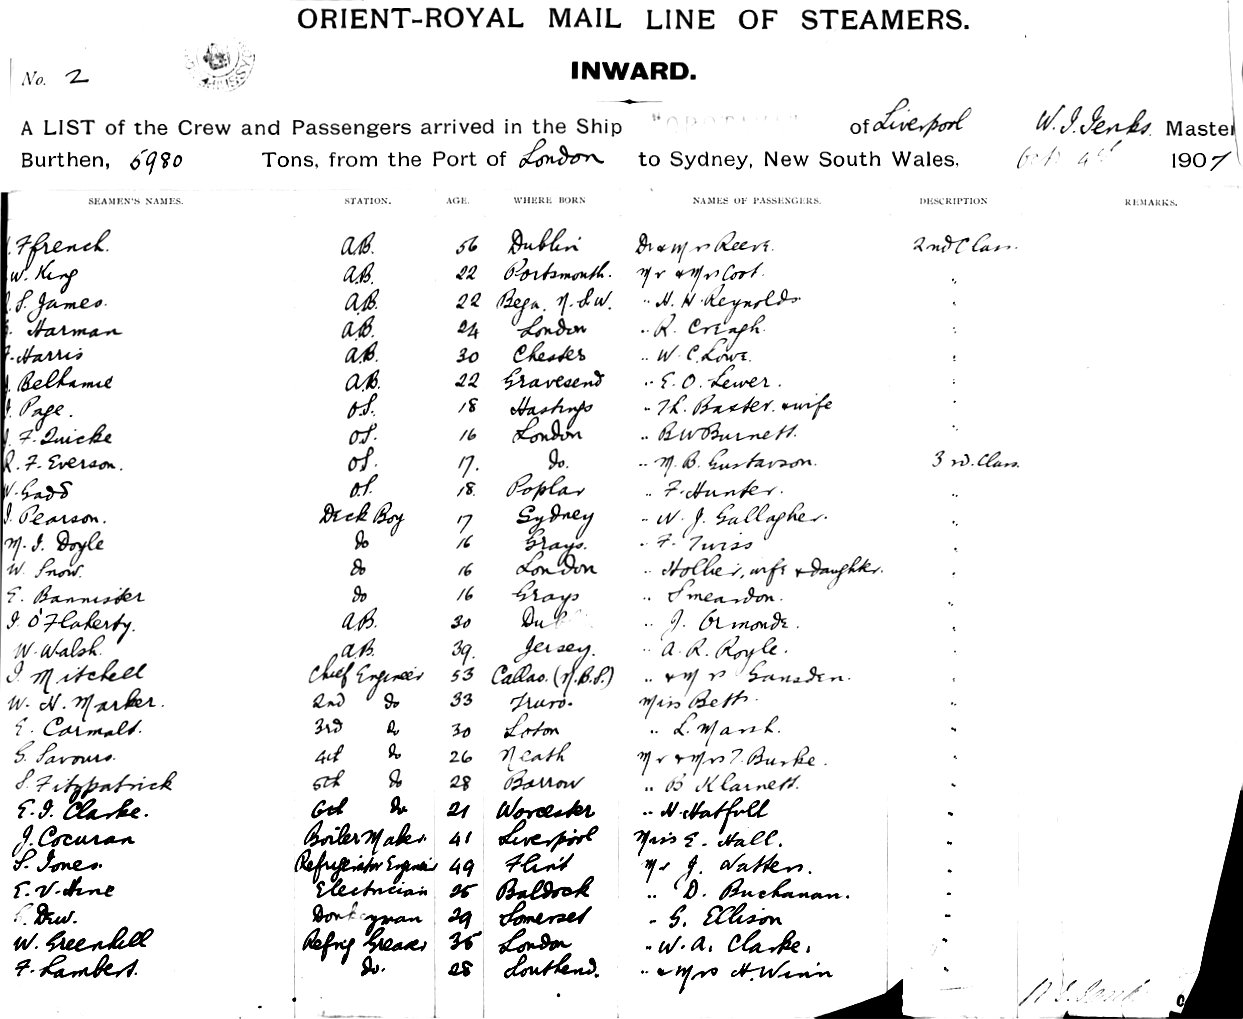 ORIENT-ROYAL MAIL LINE OF STEAMERS.
No. 2
INWARD.
A LIST of the Crew and Passengers arrived in the Ship of Liverpool W. J. Jenks. Master
Burthen, 5980 Tons, from the Port of London to Sydney, New South Wales, 1907
SEAMEN'S NAMES. STATION. AGE. WHERE BORN NAMES OF PASSENGERS. DESCRIPTION REMARKS.
Ffrench. A.B. 56 Dublin Dr & Mrs Reeve. 2nd Class.
W. King A.B. 22 Portsmouth. Mr & Mrs Coot. "
S. James. A.B. 22 Bega. N.S.W. " H. H. Reynolds "
Harman A.B. 24 London " R. Creagh. "
Harris A.B. 30 Chester " W. C. Lowe. "
Belhamie A.B. 22 Gravesend " E. O. Lewer. "
J. Page. O.S. 18 Hastings " Th. Baxter. & wife "
F. Quicke O.S. 16 London " B W Burnett. "
R. F. Everson. O.S. 17. do. " M. B. Gustavson. 3rd. Class.
W. Gadd O.S. 18. Poplar " F. Hunter. "
J. Pearson. Deck Boy 17 Sydney " W. J. Gallagher. "
M. J. Doyle do 16 Grays. " F. Twiss "
W. Snow. do 16 London " Hollier, wife & daughter. "
E. Bannister do 16 Grays " Smeardon. "
J. O'Flaherty. A.B. 30 Dub " J. Ormonde. "
W. Walsh. A.B. 39. Jersey. " A. R. Royle. "
J. Mitchell Chief Engineer 53 Callao. (N.B.S.) " & Mrs Gausden. "
W. H. Marker. 2nd do 33 Truro. Miss Bett. "
E. Carmalt. 3rd do 30 " L. Marsh. "
G. Savours. 4th do 26 Neath Mr & Mrs T. Burke. "
S. Fitzpatrick 5th do 28 Barrow " B Klarnett. "
E. J. Clarke. 6th do 21 Worcester " H. Hatfull "
J. Cocuran Boiler Maker 41 Liverpool Miss E. Hall. "
S. Jones. Refrigerator Engineer 49 Flint Mr J. Watters. "
E. V. Hine Electrician 25 Baldock " D. Buchanan. "
Dew. Donkeyman 29 Somerset " G. Ellison "
W. Greenhill Refrig Greaser 35 London " W. A. Clarke. "
F. Lambert. do. 28 Southend. " & Mrs H. Winn "